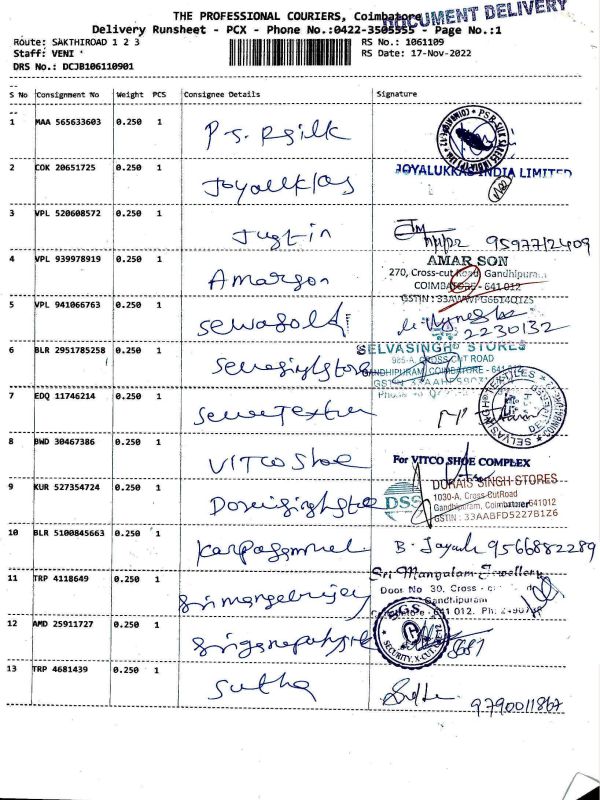 THE PROFESSIONAL COURIERS, Coimbatore
DOCUMENT DELIVERY
Delivery Runsheet - PCX - Phone No.:0422-3505555 - Page No.:1
Route: SAKTHIROAD 1 2 3 RS No.: 1061109
Staff: VENI RS Date: 17-Nov-2022
DRS No.: DCJB106110901
S No Consignment No Weight PCS Consignee Details Signature
1 MAA 565633603 0.250 1 P.S. R silk
2 COK 20651725 0.250 1 Joyallkkas JOYALUKKAS INDIA LIMITED
3 VPL 520608572 0.250 1 Justin 9597712409
4 VPL 939978919 0.250 1 Amarson AMAR SON
270, Cross-cut Road, Gandhipuram
COIMBATORE - 641 012
GSTIN : 33AWVPG6614Q1ZS
5 VPL 941066763 0.250 1 2230132
6 BLR 2951785258 0.250 1 SELVASINGH STORES
985-A, CROSS CUT ROAD
GANDHIPURAM, COIMBATORE - 641 012
7 EDQ 11746214 0.250 1 SELVASINGH TEXTILES
8 BWD 30467386 0.250 1 VITCO Shoe For VITCO SHOE COMPLEX
9 KUR 527354724 0.250 1 DSS DORAIS SINGH STORES
1030-A, Cross CutRoad
Gandhipuram, Coimbatore 641012
GSTIN : 33AABFD5227B1Z6
10 BLR 5100845663 0.250 1 B. 9566882289
11 TRP 4118649 0.250 1 Sri Mangalam Jewellery
Door No 30, Cross -
Gandhipuram
12 AMD 25911727 0.250 1 SECURITY, X-CUT
13 TRP 4681439 0.250 1 Sutha 9790011867